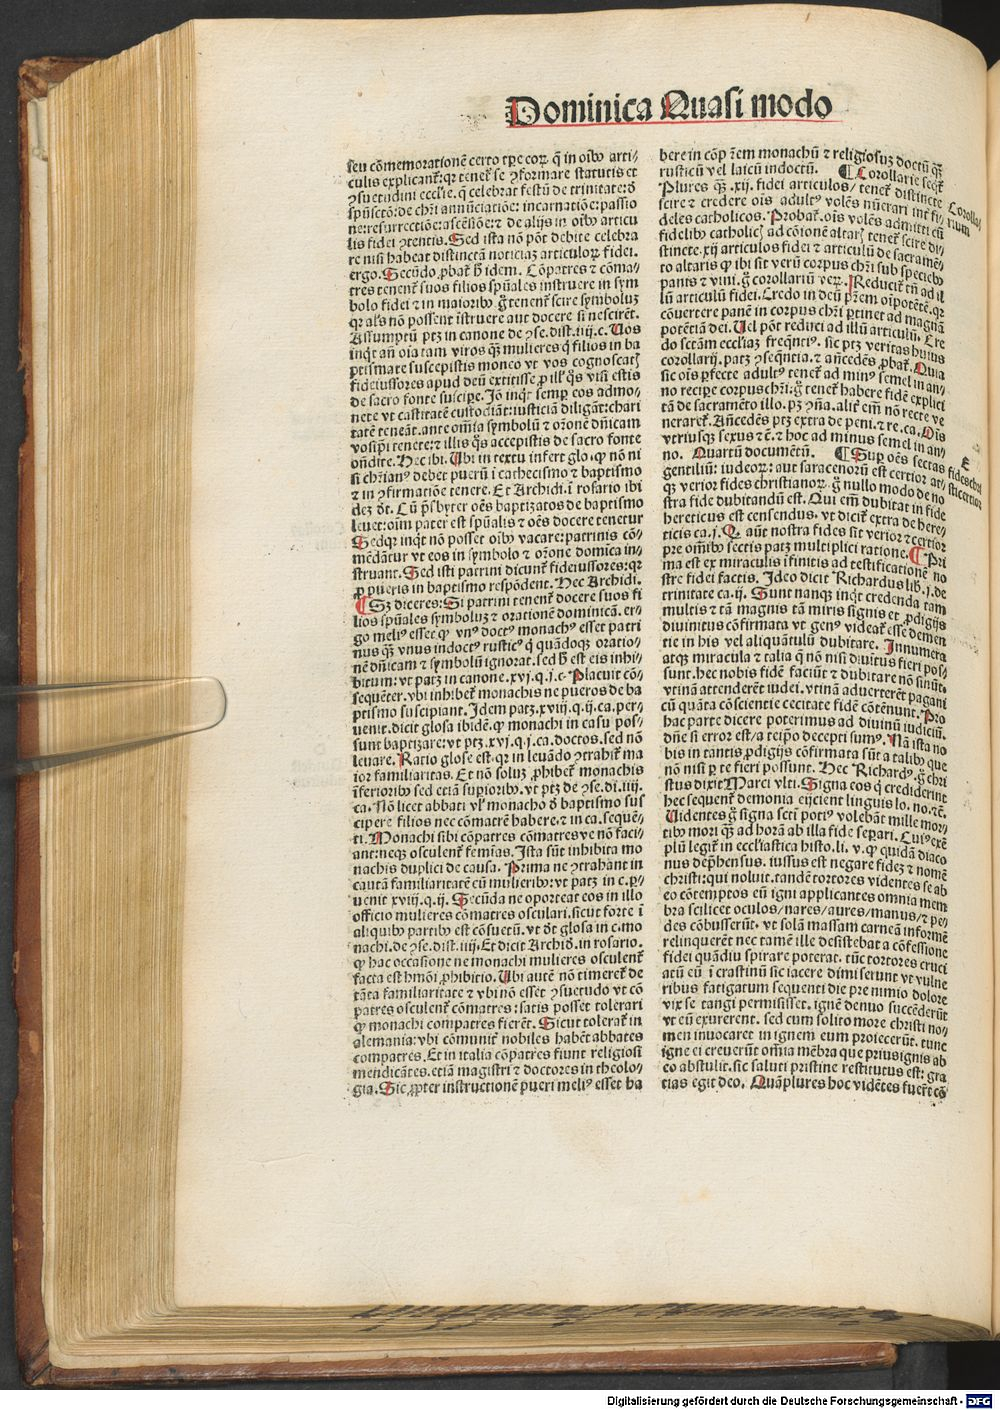 Dominica Quasi modo
seu cõmemorationẽ certo tp̃e coꝝ q̃ in oĩbꝰ arti/
culis explicant᷑: qꝛ tenet᷑ se ꝯformare statutis et
ꝯsuetudini eccl̃ie. q̃ celebrat festũ de trinitate: d̓
sp̃usctõ: de chr̃i annũciatiõe: incarnatiõe: passio
ne: resurrectiõe: ascẽsiõe: ⁊ de alijs in oĩbꝰ articu
lis fidei ꝯtentis. Sed ista nõ põt debite celebra
re nisi habeat distinctã noticiaꝫ articuloꝝ fidei.
ergo. Secũdo ꝓbat᷑ h̃ idem. Cõpatres ⁊ cõma/
tres tenent᷑ suos filios sp̃uales instruere in sym
bolo fidei ⁊ in maioribꝰ g̃ tenent᷑ scire symboluꝫ
qꝛ al̃s nõ possent ĩstruere aut docere si nescirẽt.
Assumptũ ptꝫ in canone de ꝯse. dist. iiij. c. Uos
inq̃t añ oĩa tam viros q̃ꝫ mulieres q̃ filios in ba
ptismate suscepistis moneo vt vos cognoscat̃
fideiussores apud deũ extitisse ꝓ ill̓ q̃s visi estis
de sacro fonte suscip̃e. Jõ inq̃t semꝑ eos admo/
nete vt castitatẽ custodiãt: iusticiã diligãt: chari
tatẽ teneãt. ante om̃ia symbolũ ⁊ or̃onẽ dñicam
vosip̃i tenete: ⁊ illis q̃s accepistis de sacro fonte
oñdite. Hec ibi. Ubi in textu infert glo. ꝙ nõ ni
si chr̃ianꝰ debet puerũ ĩ cathecismo ⁊ baptismo
⁊ in ꝯfirmatiõe tenere. Et Archidi. ĩ rosario ibi
deꝫ d̓t. Cũ p̃sbyter oẽs baptizatos de baptismo
leuet: oĩm pater est sp̃ualis ⁊ oẽs docere tenetur
Sedqꝛ inq̃t nõ posset oĩbꝰ vacare: patrinis cõ/
mẽdãtur vt eos in symbolo ⁊ or̃one dom̃ica in/
struant. Sed isti patrini dicunt᷑ fideiussores: qꝛ
ꝓ pueris in baptismo respõdent. Hec Archidi.
¶ Sꝫ diceres: Si patrini tenent᷑ docere suos fi
lios sp̃uales symboluꝫ ⁊ orationẽ dominicã. er/
go meliꝰ esset ꝙ vnꝰ doctꝰ monachꝰ esset patri
nus q̃ꝫ vnus indoctꝰ rusticꝰ q̃ quãdoqꝫ oratio/
nẽ dñicam ⁊ symbolũ ignorat. sed h̃ est eis inhi/
bitum: vt patꝫ in canone. xvj. q. j. c. Placuit cõ/
sequẽter. vbi inhibet᷑ monachis ne pueros de ba
ptismo suscipiant. Idem patꝫ. xviij. q. ij. ca. per/
uenit. dicit glosa ibidẽ. ꝙ monachi in casu pos/
sunt baptizare: vt ptꝫ. xvj. q. j. ca. doctos. sed nõ
leuare. Ratio glose est. qꝛ in leuãdo ꝯtrahit᷑ ma
ior familiaritas. Et nõ soluꝫ ꝓhibet᷑ monachis
ĩferioribꝰ sed etiã superioribꝰ. vt ptꝫ de ꝯse. di. iiij.
ca. Nõ licet abbati vl̓ monacho d̓ baptismo sus
cipere filios nec cõmatrẽ habere. ⁊ in ca. sequẽ/
ti. Monachi sibi cõpatres cõmatres ve nõ faci/
ant: neqꝫ osculent᷑ fem̃ias. Ista sũt inhibita mo
nachis duplici de causa. Prima ne ꝯtrahant in
cautã familiaritatẽ cũ mulieribꝰ: vt patꝫ in c. ꝑ/
uenit xviij. q. ij. Secũda ne oporteat eos in illo
officio mulieres cõmatres osculari. sicut forte ĩ
aliquibꝰ partibꝰ est cõsuetũ. vt d̓t glosa in c. mo
nachi. de ꝯse. dist. iiij. Et dicit Archid̓. in rosario.
ꝙ hac occasione ne monachi mulieres osculent᷑
facta est hm̃oi ꝓhibitio. Ubi autẽ nõ timeret᷑ de
tãta familiaritate ⁊ vbi nõ esset ꝯsuetudo vt cõ
patres osculent᷑ cõmatres: satis posset tolerari
ꝙ monachi compatres fierẽt. Sicut tolerat᷑ in
alemania: vbi cõmunit᷑ nobiles habẽt abbates
compatres. Et in italia cõpatres fiunt religiosi
mendicãtes. etiã magistri ⁊ doctores in theolo/
gia. Sic ꝓpter instructionẽ pueri meliꝰ esset ha
bere in cõp̃rem monachũ ⁊ religiosuꝫ doctũ q̃ꝫ
rusticũ vel laicũ indoctũ. ¶ Corollarie seq̃t᷑
Plures q̃ꝫ. xij. fidei articulos/ tenet᷑ distincte
scire ⁊ credere oĩs adultꝰ volẽs nũerari int᷑ fi/
deles catholicos. Probat᷑. oĩs volẽs admitti cũ
fidelibꝰ catholicis ad cõionẽ altaris tenet᷑ scire di/
stincte. xij articulos fidei ⁊ articulũ de sacramẽ/
to altaris ꝙ ibi sit verũ corpus chr̃i sub speciebꝰ
panis ⁊ vini. g̃ corollariũ veꝝ. Reducit᷑ tñ ad il
lũ articulũ fidei. Credo in deũ pr̃em oĩpotẽtẽ. qꝛ
cõuertere panẽ in corpus chr̃i ꝑtinet ad magnã
potẽtiã dei. Uel põt reduci ad illũ articulũ. Cre
do sctãm eccl̃iaꝫ freq̃ntiꝰ. sic ptꝫ veritas huius
corollarij. patꝫ ꝯseq̃ntia. ⁊ añcedẽs ꝓbat᷑. Quia
sic oĩs ꝑfecte adultꝰ tenet᷑ ad minꝰ semel in an/
no recipe corpus chr̃i: g̃ tenet᷑ habere fidẽ explici
tã de sacramẽto illo. pꝫ ꝯña. alit᷑ em̃ nõ recte ve
neraret᷑. Añcedẽs ptꝫ extra de peni. ⁊ re. ca. Oĩs
vtriusqꝫ sexus ⁊c̃. ⁊ hoc ad minus semel in an/
no. Quartũ documẽtũ. ¶ Suꝑ oẽs sectas
gentiliũ: iudeoꝝ: aut saracenorũ est certior at/
qꝫ verior fides christianoꝝ. g̃ nullo modo de no
stra fide dubitandũ est. Qui em̃ dubitat in fide
hereticus est censendus. vt dicit᷑ extra de here/
ticis ca. j. Q̃ aũt nostra fides sit verior ⁊ certior
pre om̃ibꝰ sectis patꝫ multiplici ratione. ¶ Pri
ma est ex miraculis ĩfinitis ad testificationẽ no
stre fidei factis. Ideo dicit Richardus lib. j. de
trinitate ca. ij. Sunt nanqꝫ inq̃t credenda tam
multis ⁊ tã magnis tã miris signis et ꝓdigijs
diuinitus cõfirmata vt genꝰ videat᷑ esse demen
tie in his vel aliquãtulũ dubitare. Innumera
atqꝫ miracula ⁊ talia q̃ nõ nisi diuĩtus fieri pos/
sunt. hec nobis fidẽ faciũt ⁊ dubitare nõ sinũt.
vtinã attenderẽt iudei. vtinã aduerterẽt pagani
cũ quãta cõscientie cecitate fidẽ cõtẽnunt. Pro
hac parte dicere poterimus ad diuinũ iudiciũ.
dñe si error est/ a teip̃o decepti sumꝰ. Nã ista no
bis in tantis ꝓdigijs cõfirmata sũt ⁊ talibꝰ que
nõ nisi ꝑ te fieri possunt. Hec Richardꝰ. g̃ chri
stus dixit Marci vlti. Signa eos q̃ crediderint
hec sequent᷑ demonia eijcient linguis lo. no. ⁊c̃.
Uidentes g̃ signa sctĩ potiꝰ volebãt mille mor/
tibꝰ mori q̃ꝫ ad horã ab illa fide seꝑari. Cuiꝰ exẽ
plũ legit᷑ in eccl̃iastica histo. li. v. ꝙ quidã diaco
nus dep̃hensus. iussus est negare fideꝫ ⁊ nomẽ
christi: qui noluit. tandẽ tortores videntes se ab
eo cõtemptos eũ igni applicantes omnia mem
bra scilicet oculos/ nares/ aures/ manus/ ⁊ pe/
des cõbusserũt. vt solã massam carneã informẽ
relinquerẽt nec tamẽ ille desistebat a cõfessione
fidei quãdiu spirare poterat. tũc tortores cruci
atũ eũ ĩ crastinũ sic iacere dimiserunt vt vulne
ribus fatigatum sequenti die pre nimio dolore
vix se tangi permisisset. ignẽ denuo succẽderũt
vt eũ exurerent. sed cum solito more christi no/
men inuocaret in ignem eum proiecerũt. tunc
igne ei creuerũt om̃ia mẽbra que prius ignis ab
eo abstulit. sic saluti pristine restitutus est: gra
tias egit deo. Quãplures hoc vidẽtes fuer̃t cõ
Corolla/
rium
E
fides chri
sti certior
Digitalisierung gefördert durch die Deutsche Forschungsgemeinschaft - DFG